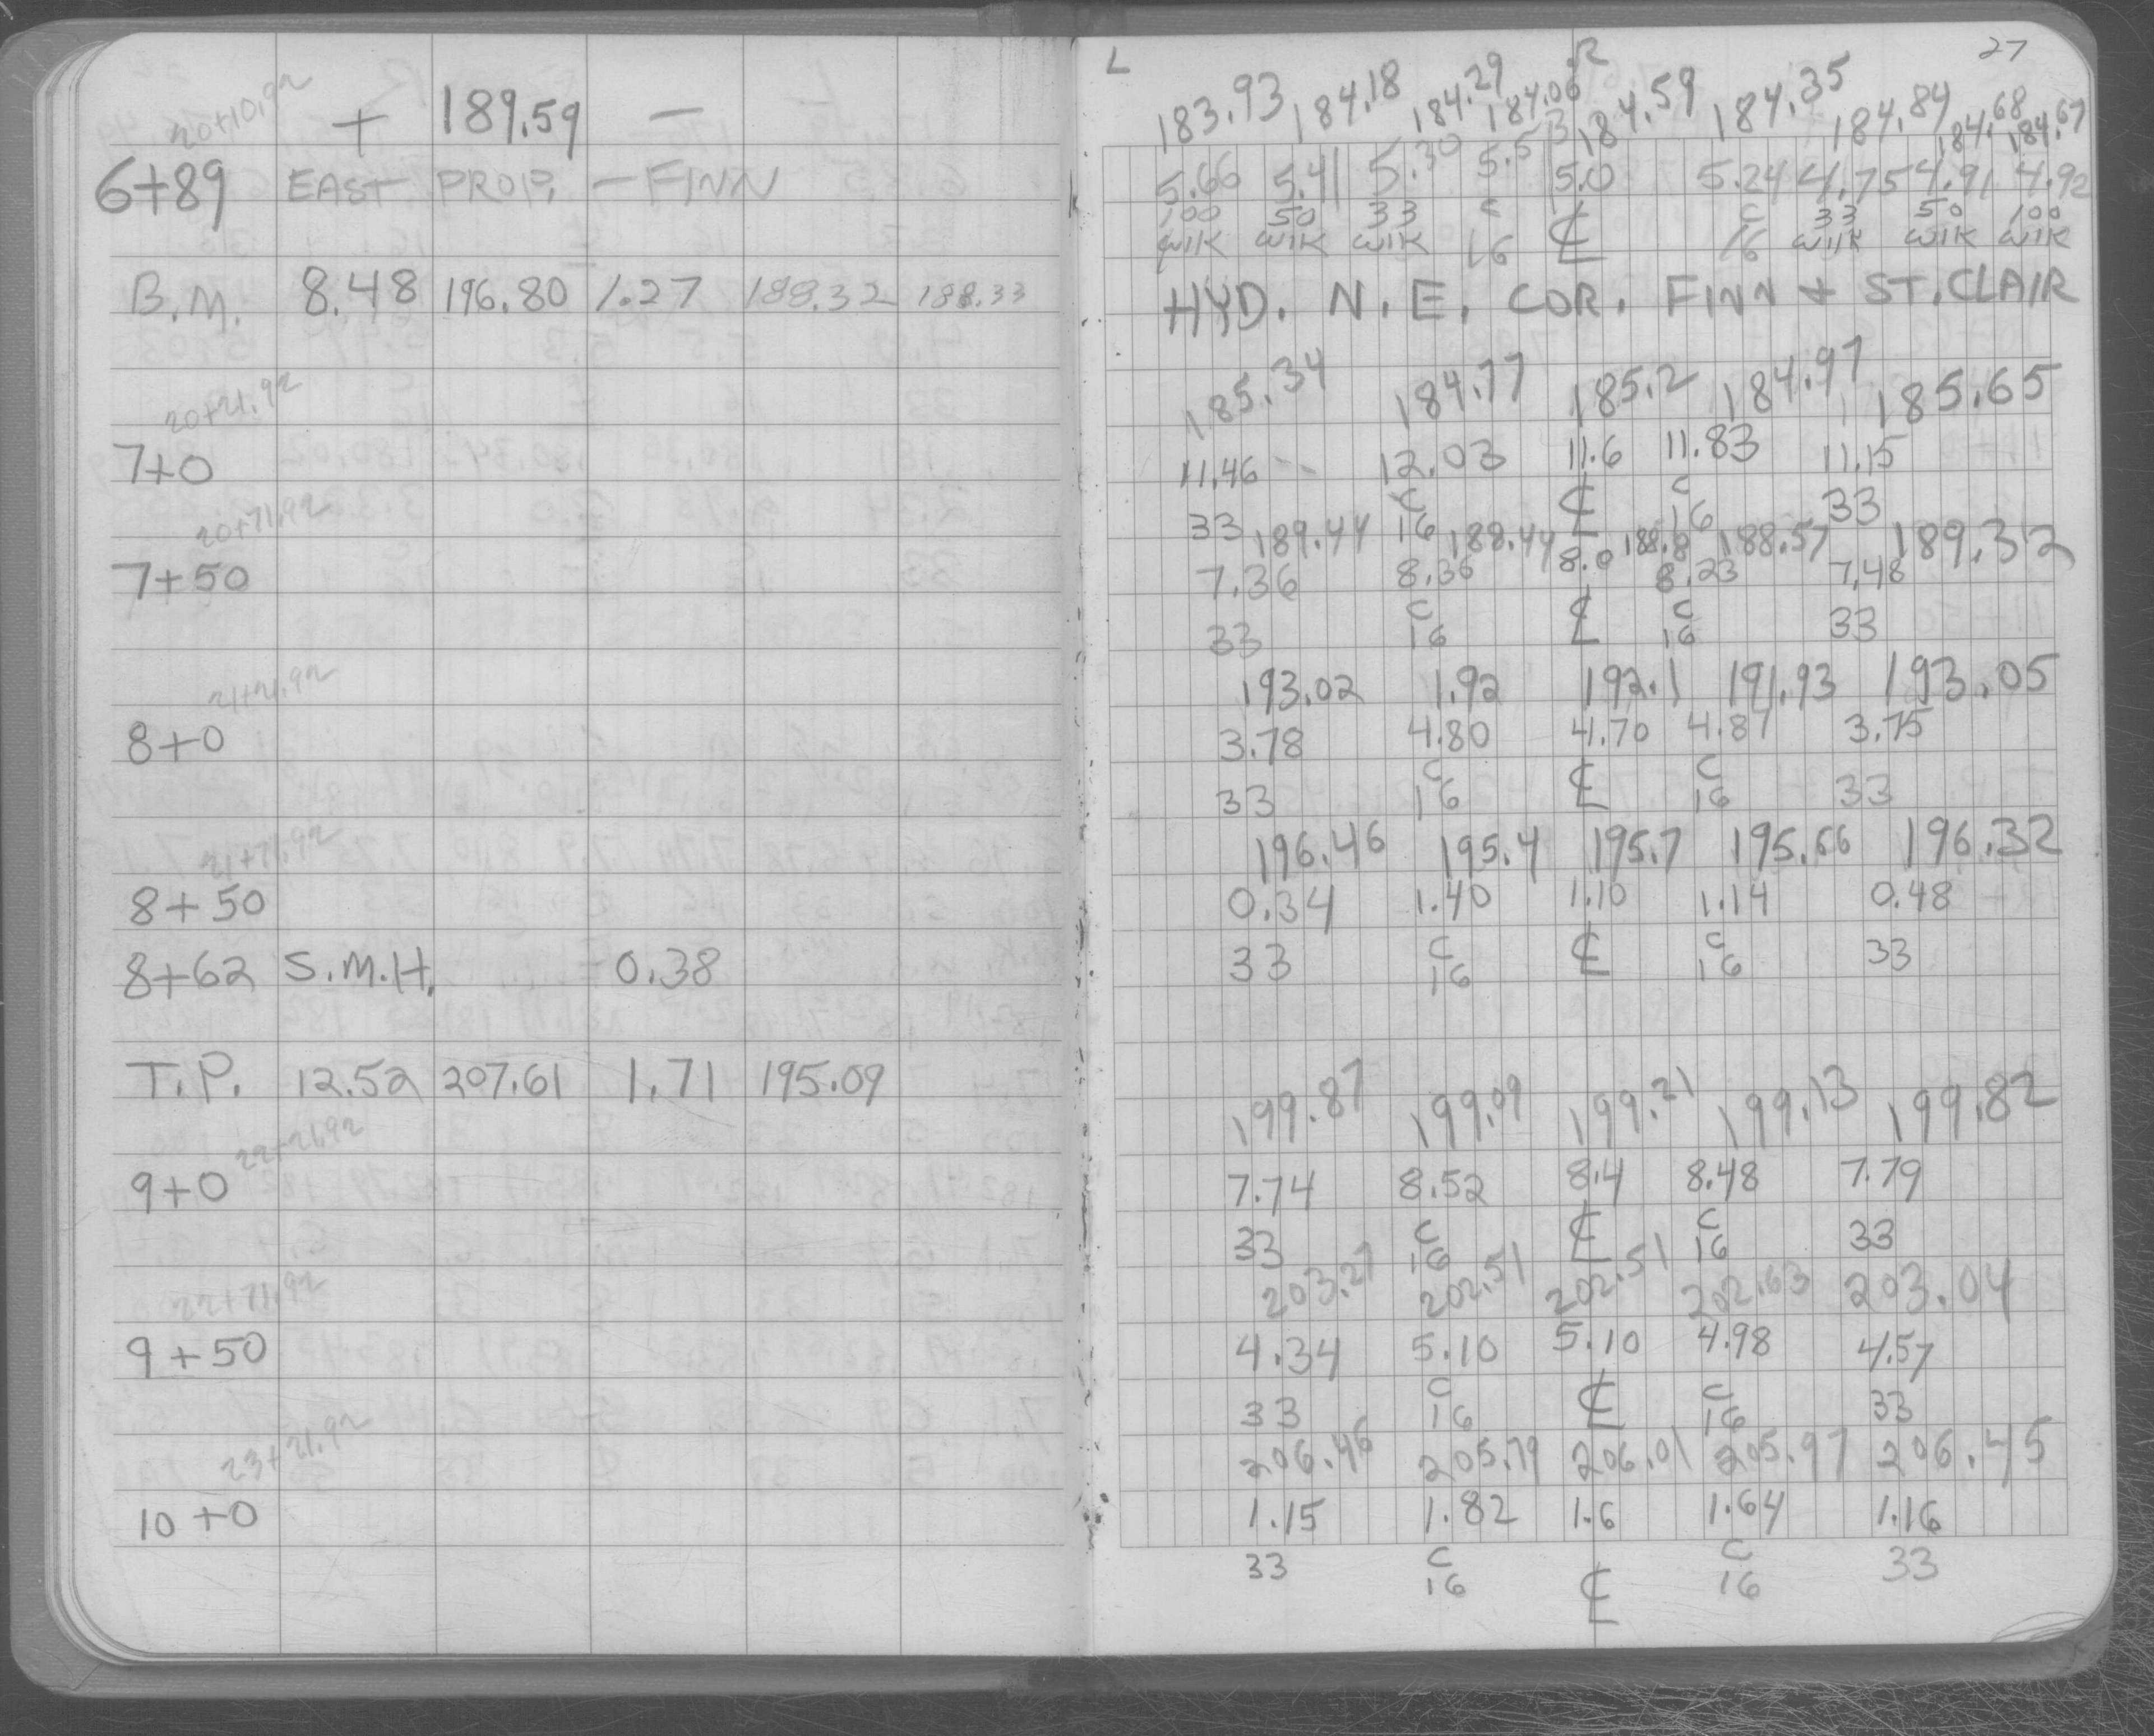 20+10.92
+ 189.59 —
6+89 EAST PROP. – FINN
B.M. 8.48 196.80 1.27 188.32 188.33
20+21.92
7+0
20+71.92
7+50
21+21.92
8+0
21+71.92
8+50
8+62 S.M.H. 0.38
T.P. 12.52 207.61 1.71 195.09
22+21.92
9+0
22+71.92
9+50
23+21.92
10+0
L R 27
183.93 184.18 184.29 184.06 184.59 184.35 184.84 184.68 184.67
5.66 5.41 5.30 5.53 5.0 5.24 4.75 4.91 4.92
100 50 33 C ℄ C 33 50 100
WIK WIK WIK 16 16 WIK WIK WIK
HYD. N.E. COR. FINN + ST. CLAIR
185.34 184.77 185.2 184.97 185.65
11.46 12.03 11.6 11.83 11.15
C ℄ C
33 16 16 33
189.44 188.44 188.8 188.57 189.32
7.36 8.36 8.0 8.23 7.48
C ℄ C
33 16 16 33
193.02 1.92 192.1 191.93 193.05
3.78 4.80 4.70 4.87 3.75
C ℄ C
33 16 16 33
196.46 195.4 195.7 195.66 196.32
0.34 1.40 1.10 1.14 0.48
33 C ℄ C 33
16 16
199.87 199.09 199.21 199.13 199.82
7.74 8.52 8.4 8.48 7.79
33 C ℄ C 33
16 16
203.27 202.51 202.51 202.63 203.04
4.34 5.10 5.10 4.98 4.57
C ℄ C
33 16 16 33
206.46 205.79 206.01 205.97 206.45
1.15 1.82 1.6 1.64 1.16
33 C ℄ C 33
16 16